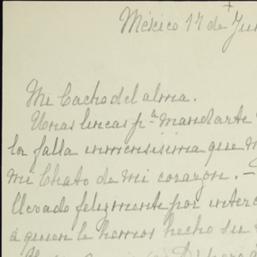 México 17 de Jun
Mi Cacho del alma.
Unas lineas pa mandarte
la falta inmensisima que
mi Chato de mi corazón. —
llevado felizmente por
á quien le hemos hecho su